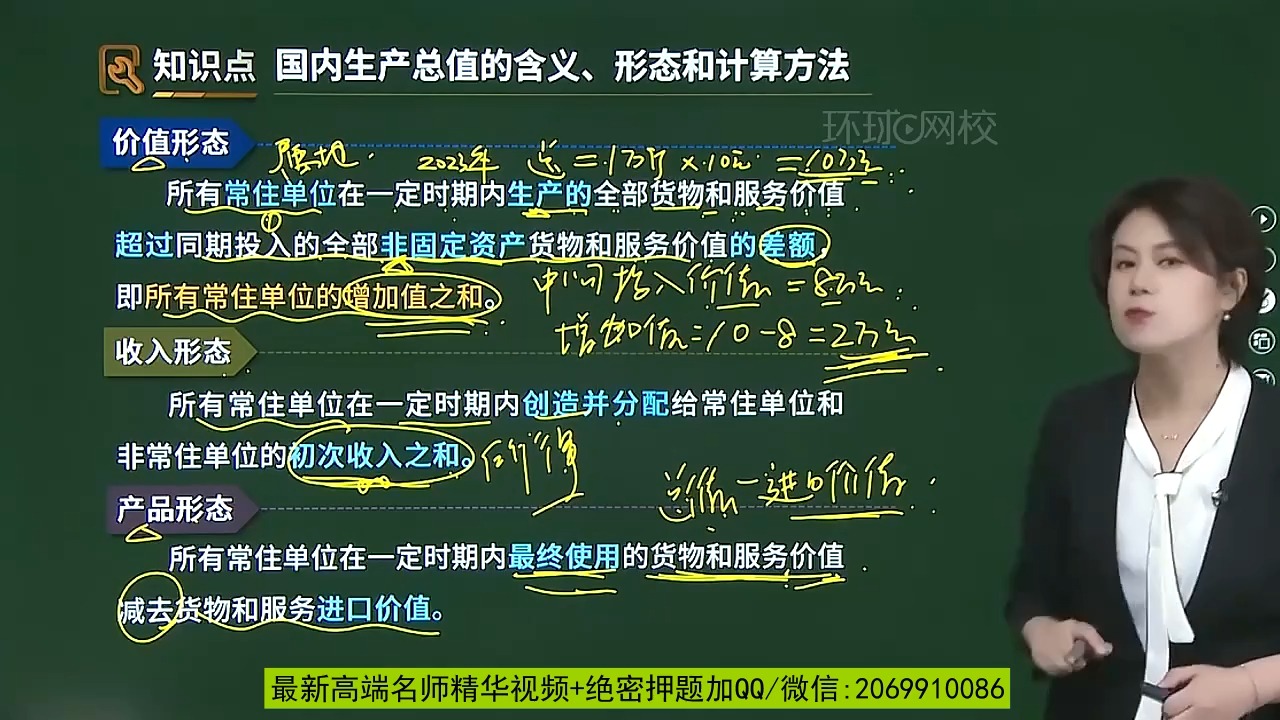 知识点 国内生产总值的含义、形态和计算方法
环球网校
价值形态
2023年 总=1万斤×10元=10万元
所有常住单位在一定时期内生产的全部货物和服务价值
①
超过同期投入的全部非固定资产货物和服务价值的差额,
中间投入价值=8万元
即所有常住单位的增加值之和。
增加值=10-8=2万元
收入形态
所有常住单位在一定时期内创造并分配给常住单位和
非常住单位的初次收入之和。
总值-进口价值
产品形态
所有常住单位在一定时期内最终使用的货物和服务价值
减去货物和服务进口价值。
最新高端名师精华视频+绝密押题加QQ/微信:2069910086